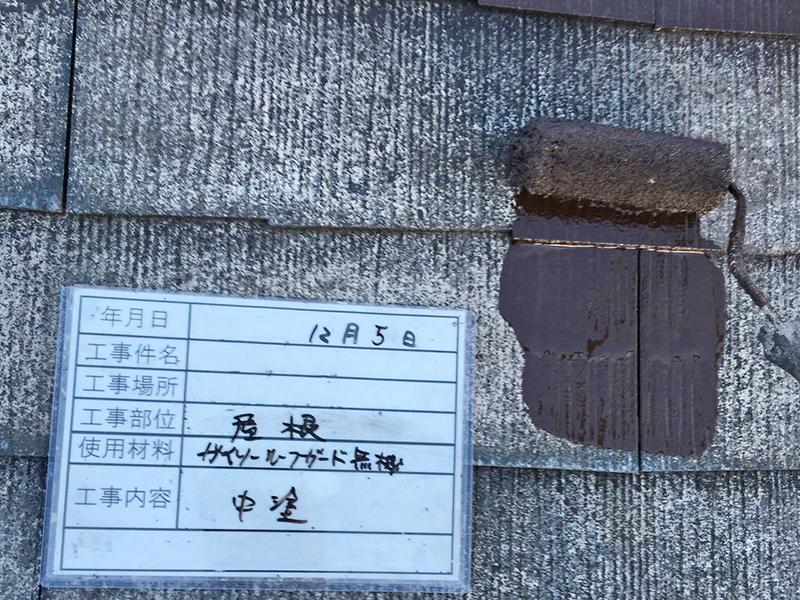 年月日 12月5日
工事件名
工事場所
工事部位 屋根
使用材料 ガイソールーフガード無機
工事内容 中塗